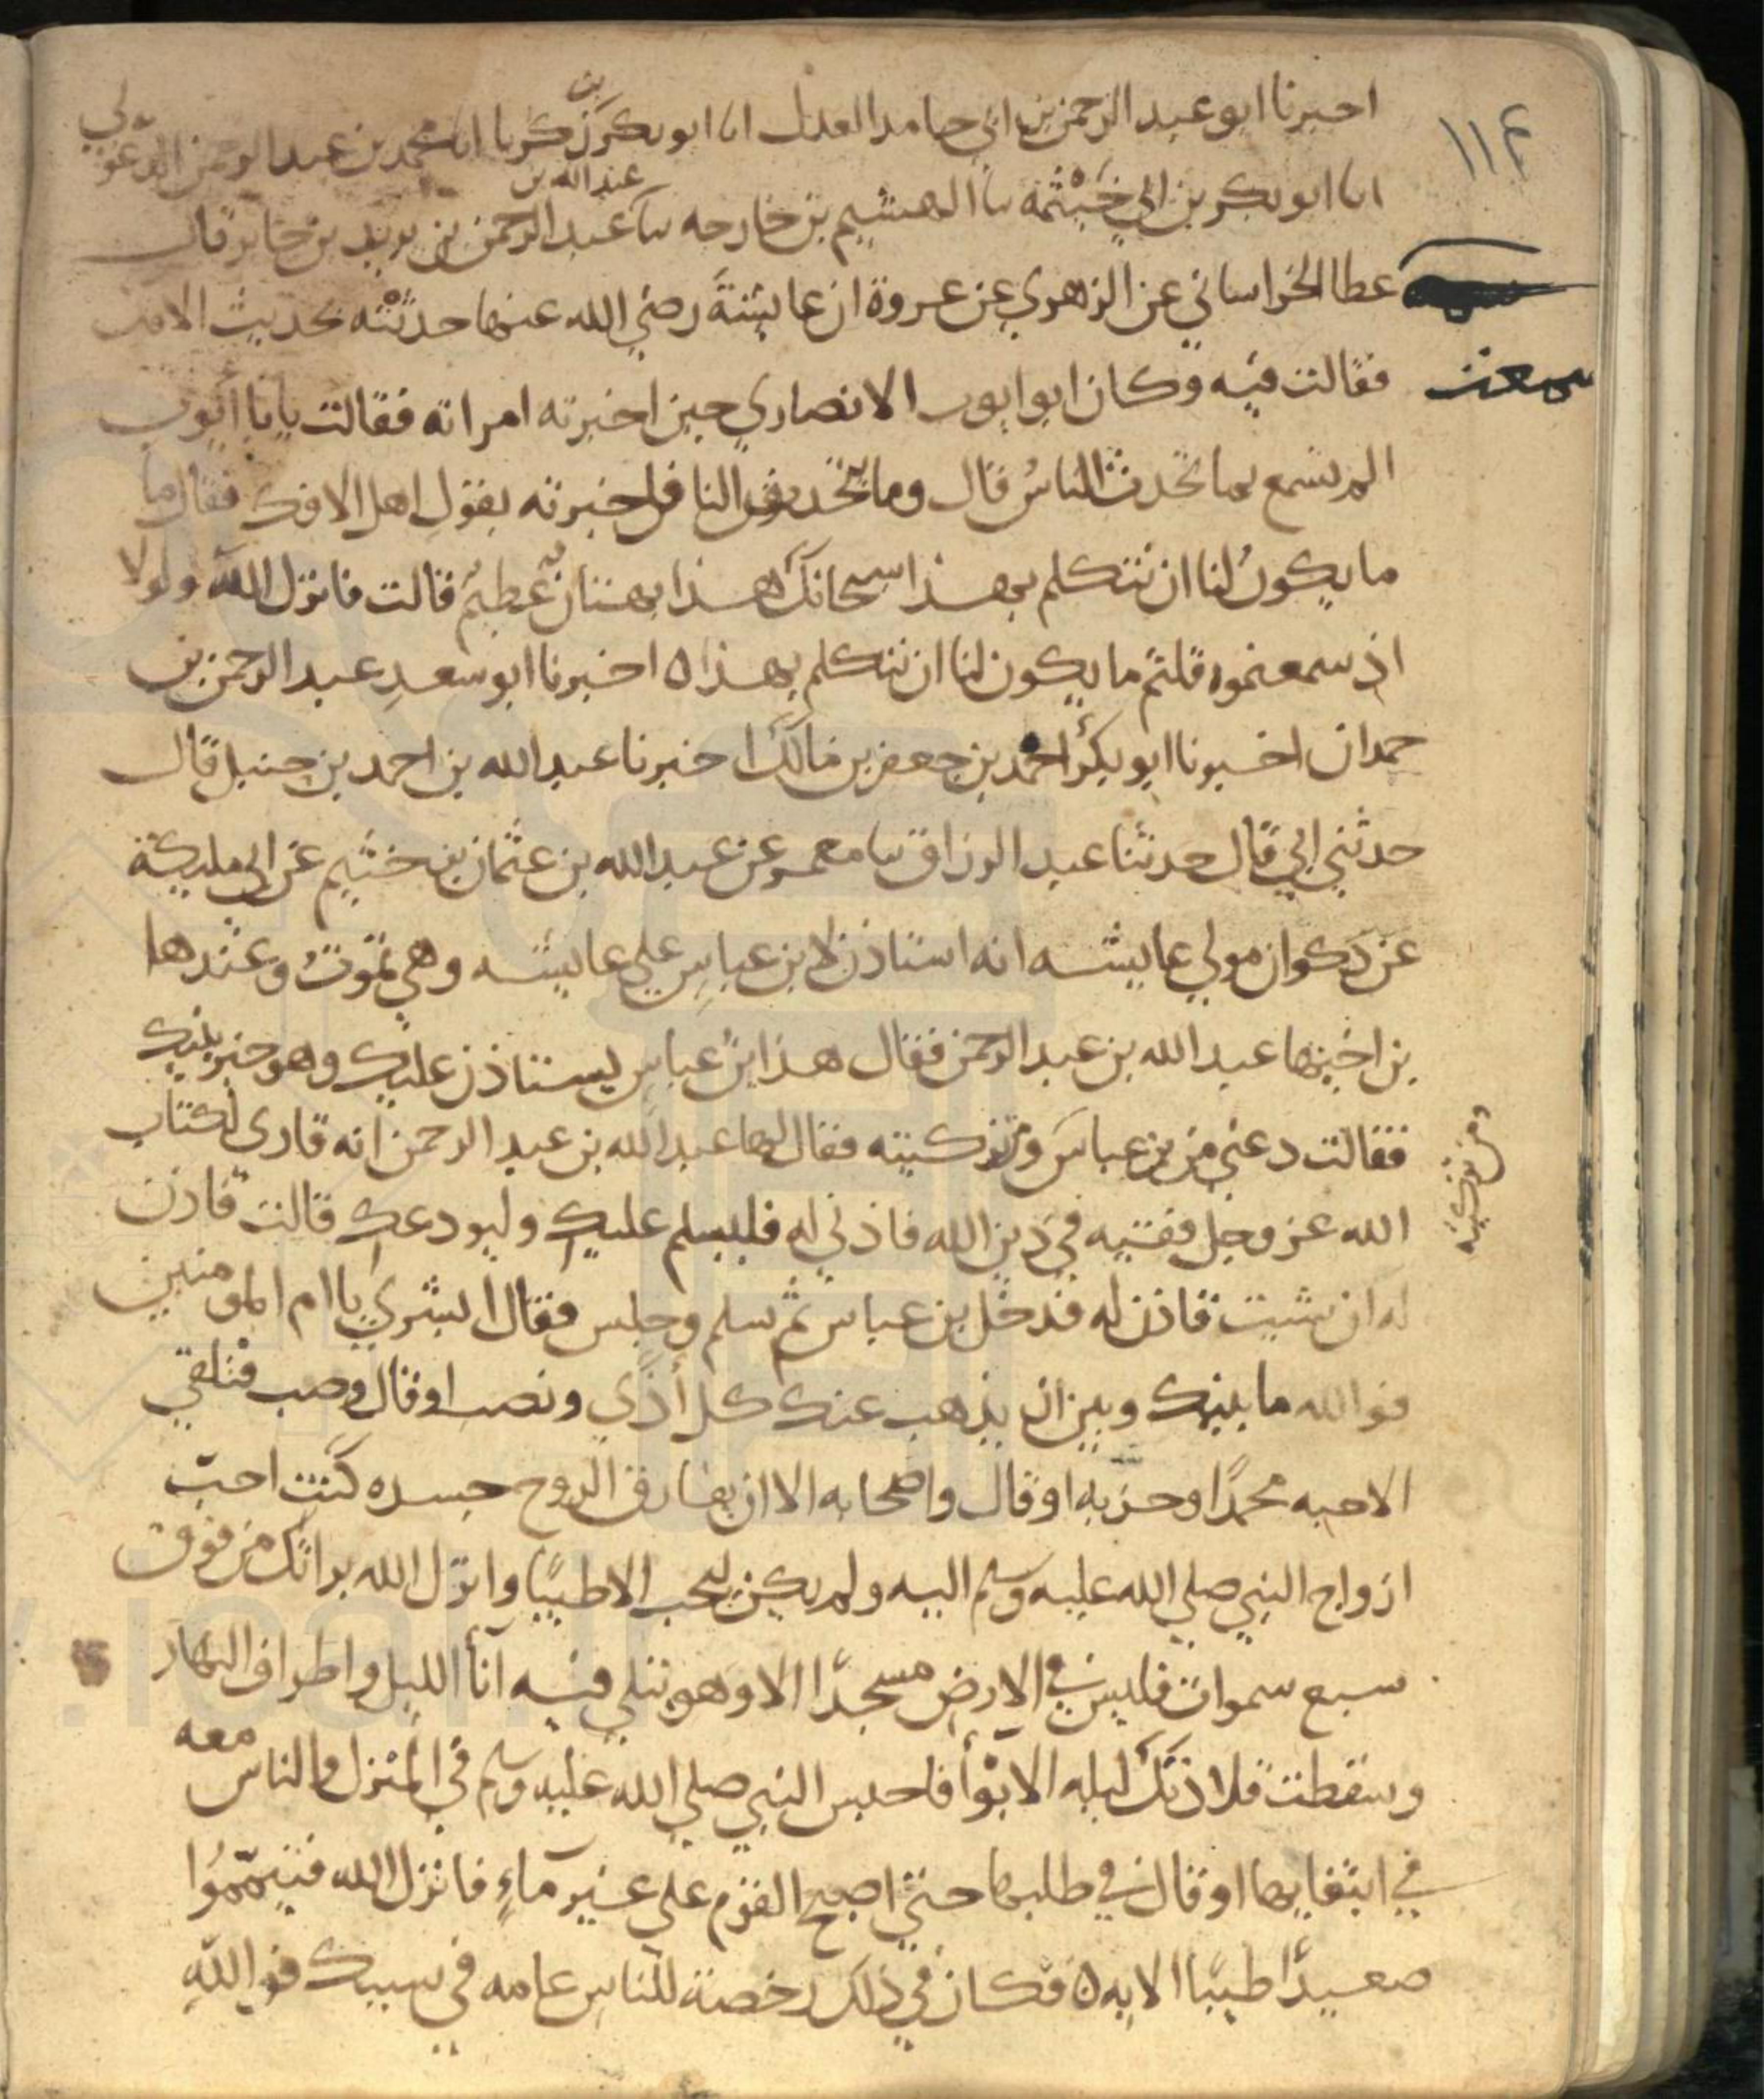 ١١٤
اخبرنا ابو عبد الرحمن بن ابي حامد العدل انا ابو بكر بن زكريا انا محمد بن عبد الرحمن الدغولي
انا ابو بكر بن ابي خَيْثمة نا الهيثم بن خارجه نا عبد الله بن عبد الرحمن بن يزيد بن جابر قال
سمعت عطا الخراساني عن الزهري عن عروة ان عايشةَ رضي الله عنها حدثتْه بحديث الافك
فقالت فيه وكان ابو ايوب الانصاري حين اخبرته امراته فقالت يابا ايوب
الم تسمع بما تحدث الناسُ قال وما يتحدثون فاخبرته بقولِ اهل الافك فقال ما
ما يكونُ لنا ان نتكلم بهذا سبحانك هذا بهتانٌ عظيمٌ قالت فانزل الله ولولا
اذ سمعتموه قلتم ما يكون لنا ان نتكلم بهذا ه اخبرنا ابو سعدِ عبد الرحمن بن
حمدان اخبرنا ابو بكر احمد بن جعفر بن مالك اخبرنا عبد الله بن احمد بن حنبل قال
حدثني ابي قال حدثنا عبد الرزاق نا معمر عن عبد الله بن عثمان بن خثيم عن ابي مليكة
عن ذكوان مولي عايشه انه استاذن لابن عباسِ علي عايشه وهي تموتُ وعندها
بن اخيها عبد الله بن عبد الرحمن فقال هذا بنُ عباس يستاذن عليك وهو خير بنيك
فقالت دعني من بن عباس ومن تزكيته فقال لها عبد الله بن عبد الرحمن انه قاري لكتاب
ومن تزكيته
الله عز وجل فقيه في دين الله فاذني له فليسلم عليكِ وليودعك قالت فاذن
له ان شيت فاذن له فدخل بن عباس ثم سلم وجلس فقال ابشري يا ام المومنين
فوالله ما بينك وبين ان يذهب عنك كل أذًي ونصب او قال وصب فتلقي
الاحبه محمدًا وحزبه او قال واصحابه الا ان يفارق الروح جسده كنتِ احبّ
ازواج النبي صلي الله عليه وسلم اليه ولم يكن يحب الا طيبًا وانزل الله براتك من فوق
سبع سموات فليس في الارض مسجدًا الا وهو يتلي فيه آنأ الليل واطراف النهار
وسقطت قلادتك ليله الابوْأ فاحتبس النبي صلي الله عليه وسلم في المنزل والناس معه
في ابتغايها او قال في طلبها حتي اصبح القوم علي غير ماءٍ فانزل الله فتيمّموُا
صعيدًا طيبًا الايه ه فكان في ذلك رخصة للناسِ عامه في سببك فواللهِ